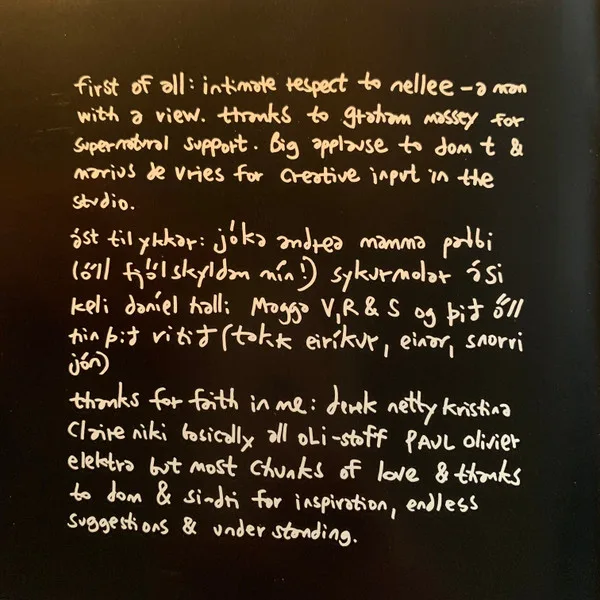 first of all: intimate respect to nellee – a man
with a view. thanks to graham massey for
supernatural support. Big applause to dom t &
marius de vries for creative input in the
studio.
ást til ykkar: jóka andrea mamma pabbi
(öll fjölskyldan mín!) sykurmolar ósi
keli daníel halli Magga V, R & S og þið öll
hin þið vitið (takk eiríkur, einar, snorri
jón)
thanks for faith in me: derek netty kristina
Claire niki basically all OLI-staff PAUL olivier
elektra but most chunks of love & thanks
to dom & sindri for inspiration, endless
suggestions & understanding.